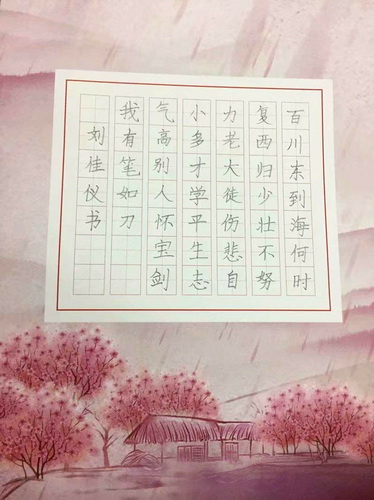 百川东到海何时
复西归少壮不努
力老大徒伤悲自
小多才学平生志
气高别人怀宝剑
我有笔如刀
刘佳仪书